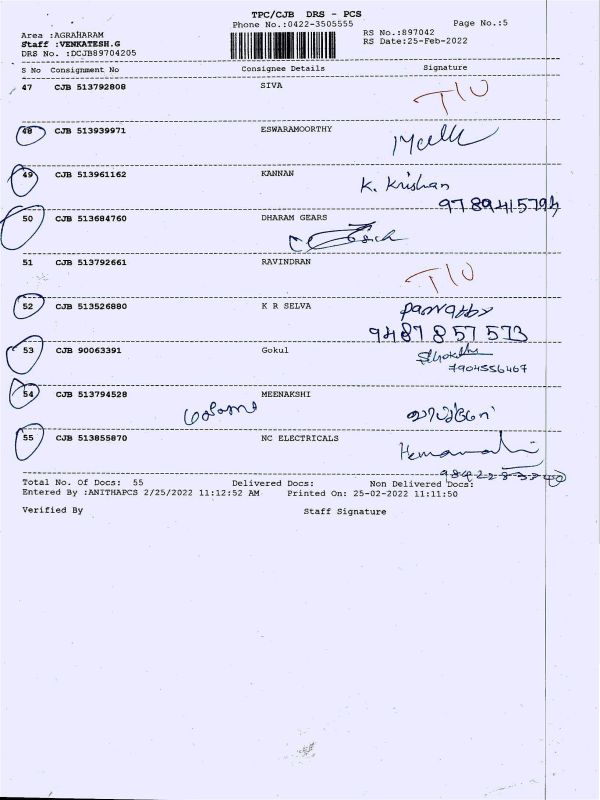 TPC/CJB DRS - PCS
Phone No.:0422-3505555 Page No.:5
Area :AGRAHARAM RS No.:897042
Staff :VENKATESH.G RS Date:25-Feb-2022
DRS No. :DCJB89704205
S No Consignment No Consignee Details Signature
47 CJB 513792808 SIVA T/U
48 CJB 513939971 ESWARAMOORTHY
49 CJB 513961162 KANNAN K. Krishan
9789415794
50 CJB 513684760 DHARAM GEARS
51 CJB 513792661 RAVINDRAN T/U
52 CJB 513526880 K R SELVA
9487857573
53 CJB 90063391 Gokul
7904556467
54 CJB 513794528 MEENAKSHI
55 CJB 513855870 NC ELECTRICALS
Total No. Of Docs: 55 Delivered Docs: Non Delivered Docs:
Entered By :ANITHAPCS 2/25/2022 11:12:52 AM Printed On: 25-02-2022 11:11:50
Verified By Staff Signature